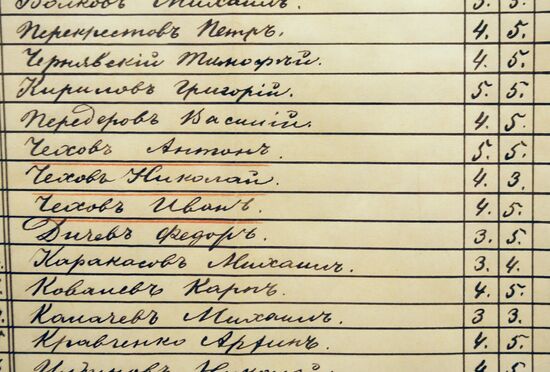 Волковъ Михаилъ. 5. 5.
Перекрестовъ Петръ. 4. 5.
Чернявскій Тимофѣй. 4. 5.
Кириловъ Григорій. 5. 5.
Передеровъ Василій. 4. 5.
Чеховъ Антонъ. 5. 5.
Чеховъ Николай. 4. 3.
Чеховъ Иванъ. 4. 5.
Дичевъ Федоръ. 3. 5.
Карапасовъ Михаилъ. 3. 4.
Ковалевъ Карпъ. 4. 5.
Калачевъ Михаилъ. 3 3.
Кравченко Архипъ. 4. 5.
Николай. 4 5